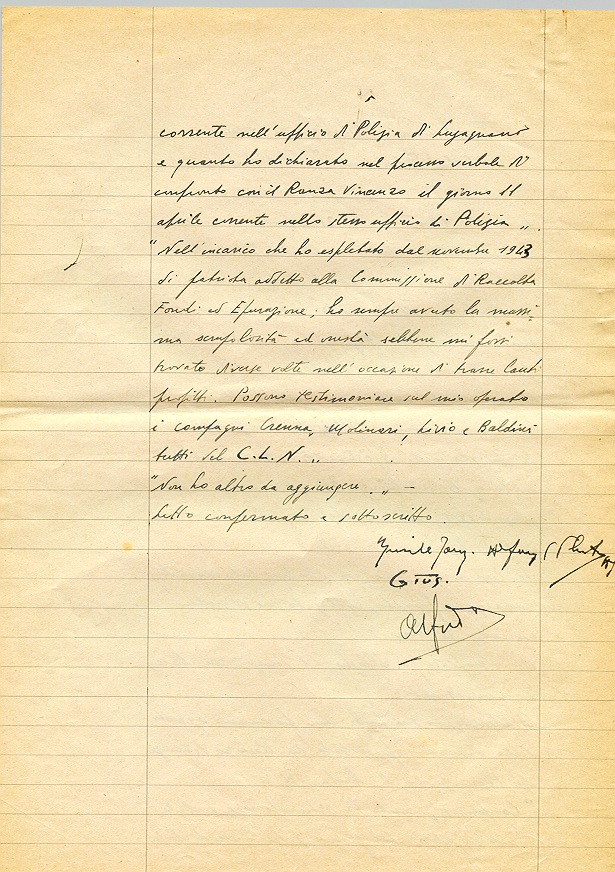 corrente nell'ufficio di Polizia di Lugagnano
e quanto ho dichiarato nel processo verbale di
confronto con il Ranza Vincenzo il giorno 11
aprile corrente nello stesso ufficio di Polizia „.
"Nell'incarico che ho espletato dal novembre 1943
di patriota addetto alla Commissione di Raccolta
Fondi ed Epurazione, ho sempre avuto la massi=
ma scrupolosità ed onestà sebbene mi fossi
trovato diverse volte nell'occasione di trarre lauti
profitti. Possono testimoniare sul mio operato
i compagni Crenna, Molinari, Livio e Baldini
tutti del C.L.N. „
"Non ho altro da aggiungere. „ —
Letto confermato e sottoscritto.
Gius.